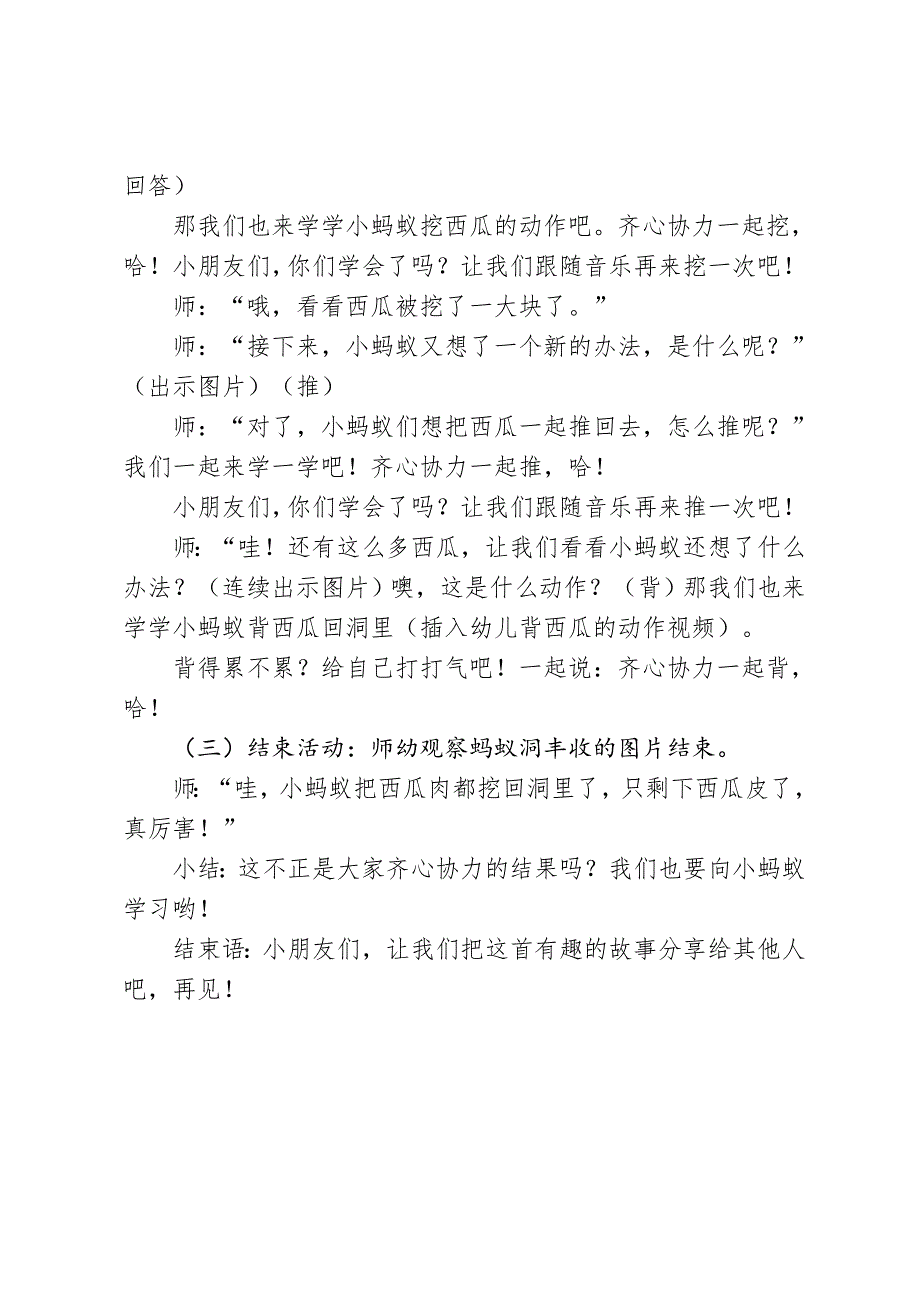 回答）
那我们也来学学小蚂蚁挖西瓜的动作吧。齐心协力一起挖，
哈！小朋友们，你们学会了吗？让我们跟随音乐再来挖一次吧！
师：“哦，看看西瓜被挖了一大块了。”
师：“接下来，小蚂蚁又想了一个新的办法，是什么呢？”
（出示图片）（推）
师：“对了，小蚂蚁们想把西瓜一起推回去，怎么推呢？”
我们一起来学一学吧！齐心协力一起推，哈！
小朋友们，你们学会了吗？让我们跟随音乐再来推一次吧！
师：“哇！还有这么多西瓜，让我们看看小蚂蚁还想了什么
办法？（连续出示图片）噢，这是什么动作？（背）那我们也来
学学小蚂蚁背西瓜回洞里（插入幼儿背西瓜的动作视频）。
背得累不累？给自己打打气吧！一起说：齐心协力一起背，
哈！
（三）结束活动：师幼观察蚂蚁洞丰收的图片结束。
师：“哇，小蚂蚁把西瓜肉都挖回洞里了，只剩下西瓜皮了，
真厉害！”
小结：这不正是大家齐心协力的结果吗？我们也要向小蚂蚁
学习哟！
结束语：小朋友们，让我们把这首有趣的故事分享给其他人
吧，再见！